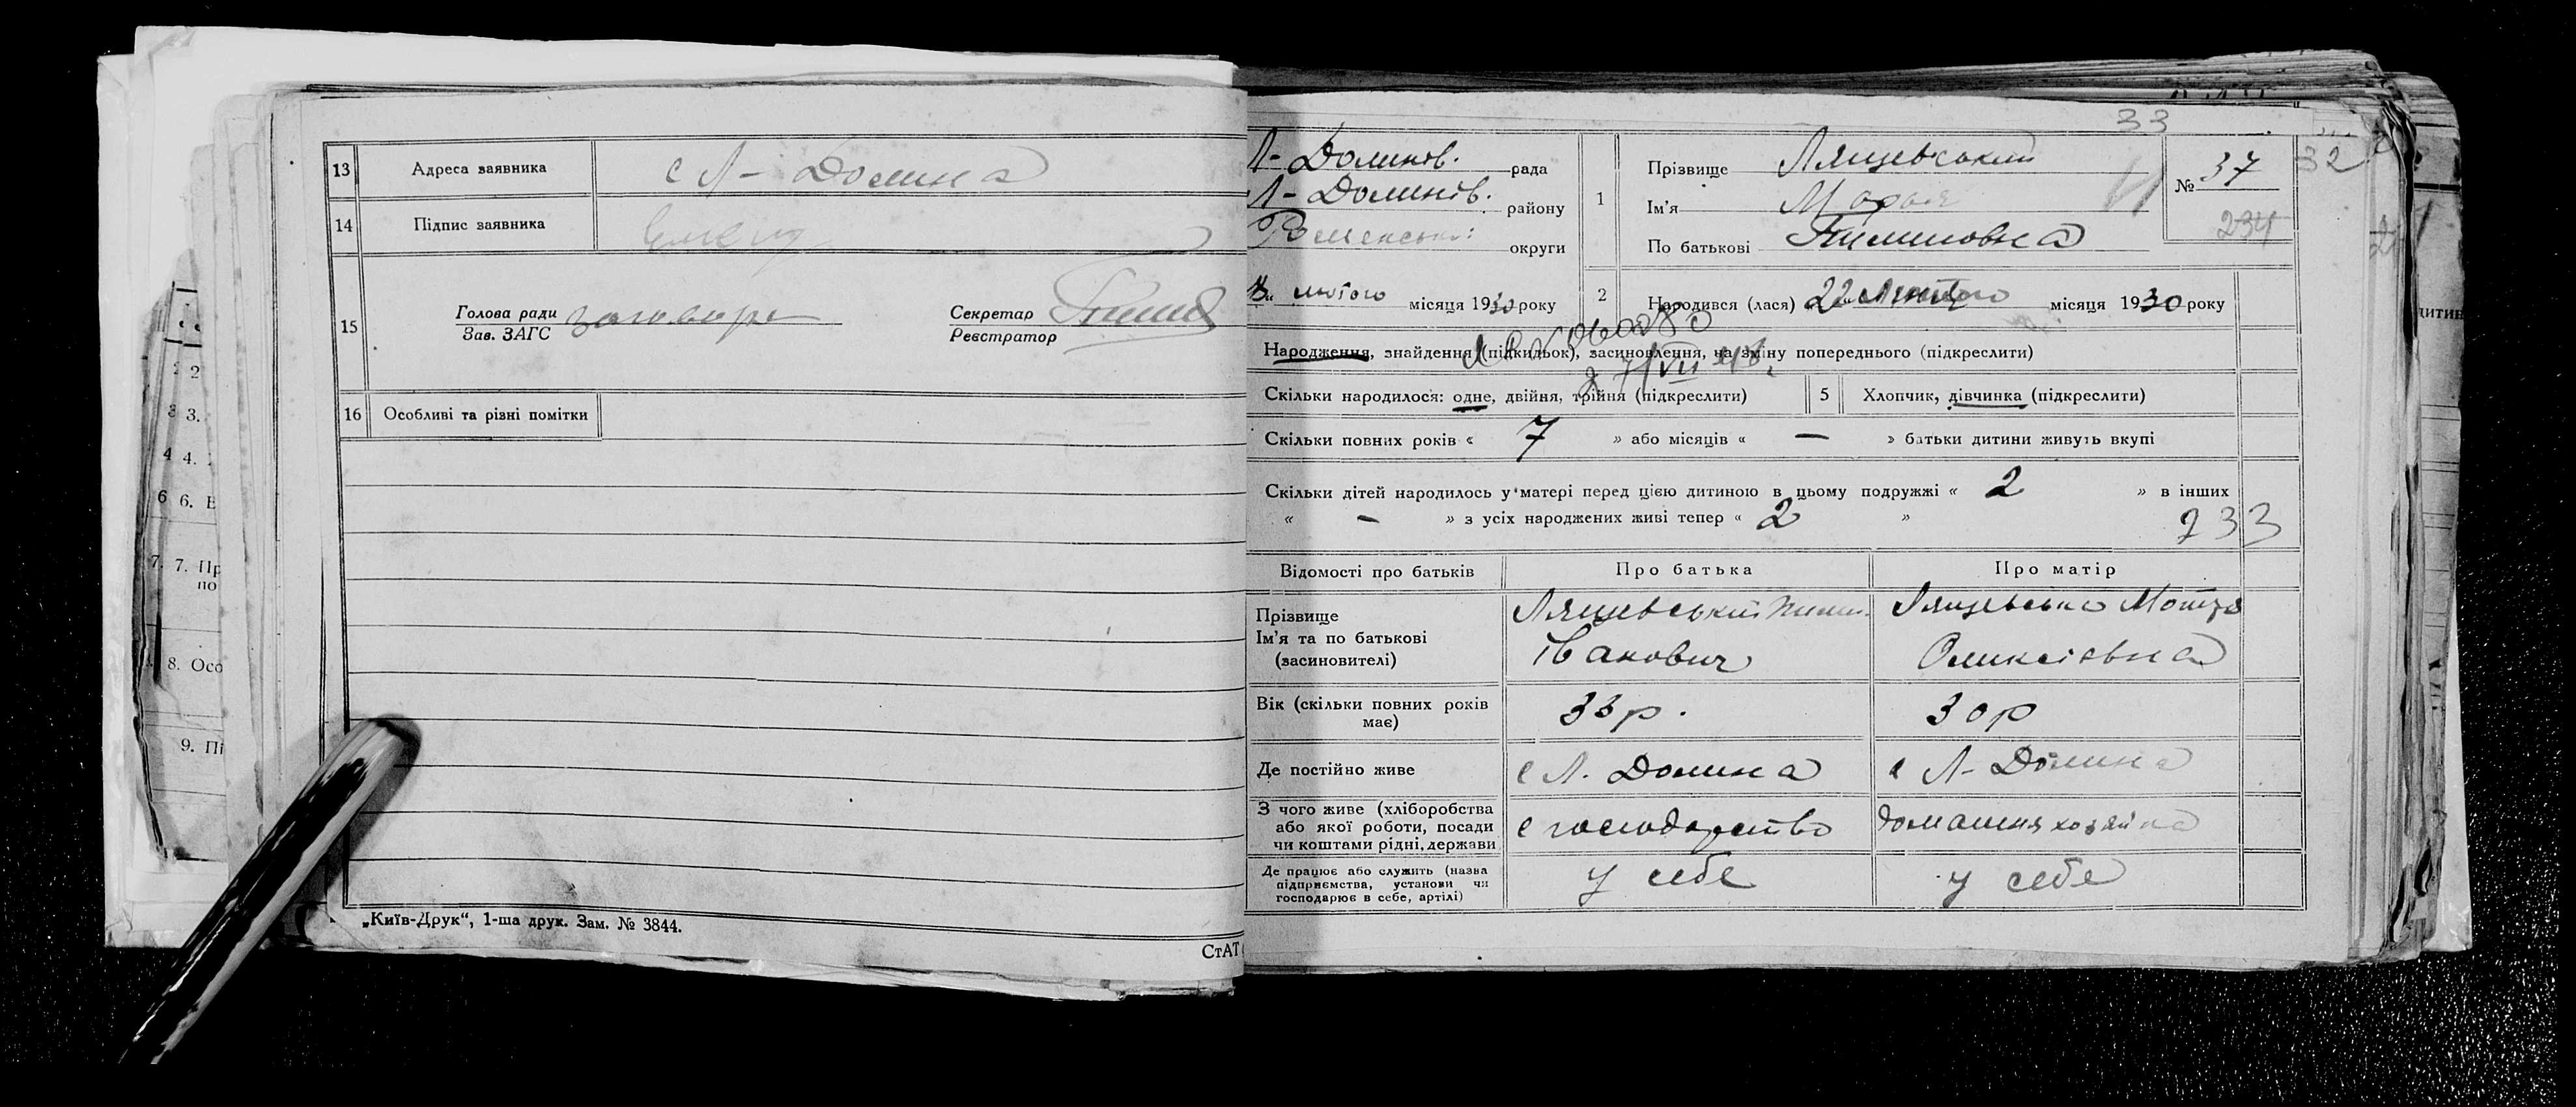 13 Адреса заявника с Л - Долина
14 Підпис заявника
15 Голова ради
Зав. ЗАГС
Секретар
Реєстратор
16 Особливі та різні помітки
„Київ-Друк“, 1-ша друк. Зам. № 3844.
СтАТ
2
3.
4 4.
6 6. В
7. 7. Пр
по
8. Осо
9. Пі
33
Л - Долинов. рада
Л - Долинів. району
Роменської округи
лютого місяця 1930 року
1 Прізвище Лящевський
Ім'я Марія
По батькові Пилиповна
№ 37
234
32
2 Народився (лася) 22 лютого місяця 1930 року
Народження, знайдення (підкидьок), засиновлення, на зміну попереднього (підкреслити)
7/VII
Скільки народилося: одне, двійня, трійня (підкреслити)
5 Хлопчик, дівчинка (підкреслити)
Скільки повних років « 7 » або місяців « — » батьки дитини живуть вкупі
Скільки дітей народилось у матері перед цією дитиною в цьому подружжі « 2 » в інших
« — » з усіх народжених живі тепер « 2 »
233
Відомості про батьків Про батька Про матір
Прізвище
Ім'я та по батькові
(засиновителі)
Лящевський Пилип.
Іванович
Лящевська Мотря
Оликсіевна
Вік (скільки повних років
має)
33 р. 30 р
Де постійно живе с Л. Долина с Л - Долина
З чого живе (хліборобства
або якої роботи, посади
чи коштами рідні, держави
с господарство домашня хозяйка
Де працює або служить (назва
підприємства, установи чи
господарює в себе, артілі)
у себе у себе
дитин